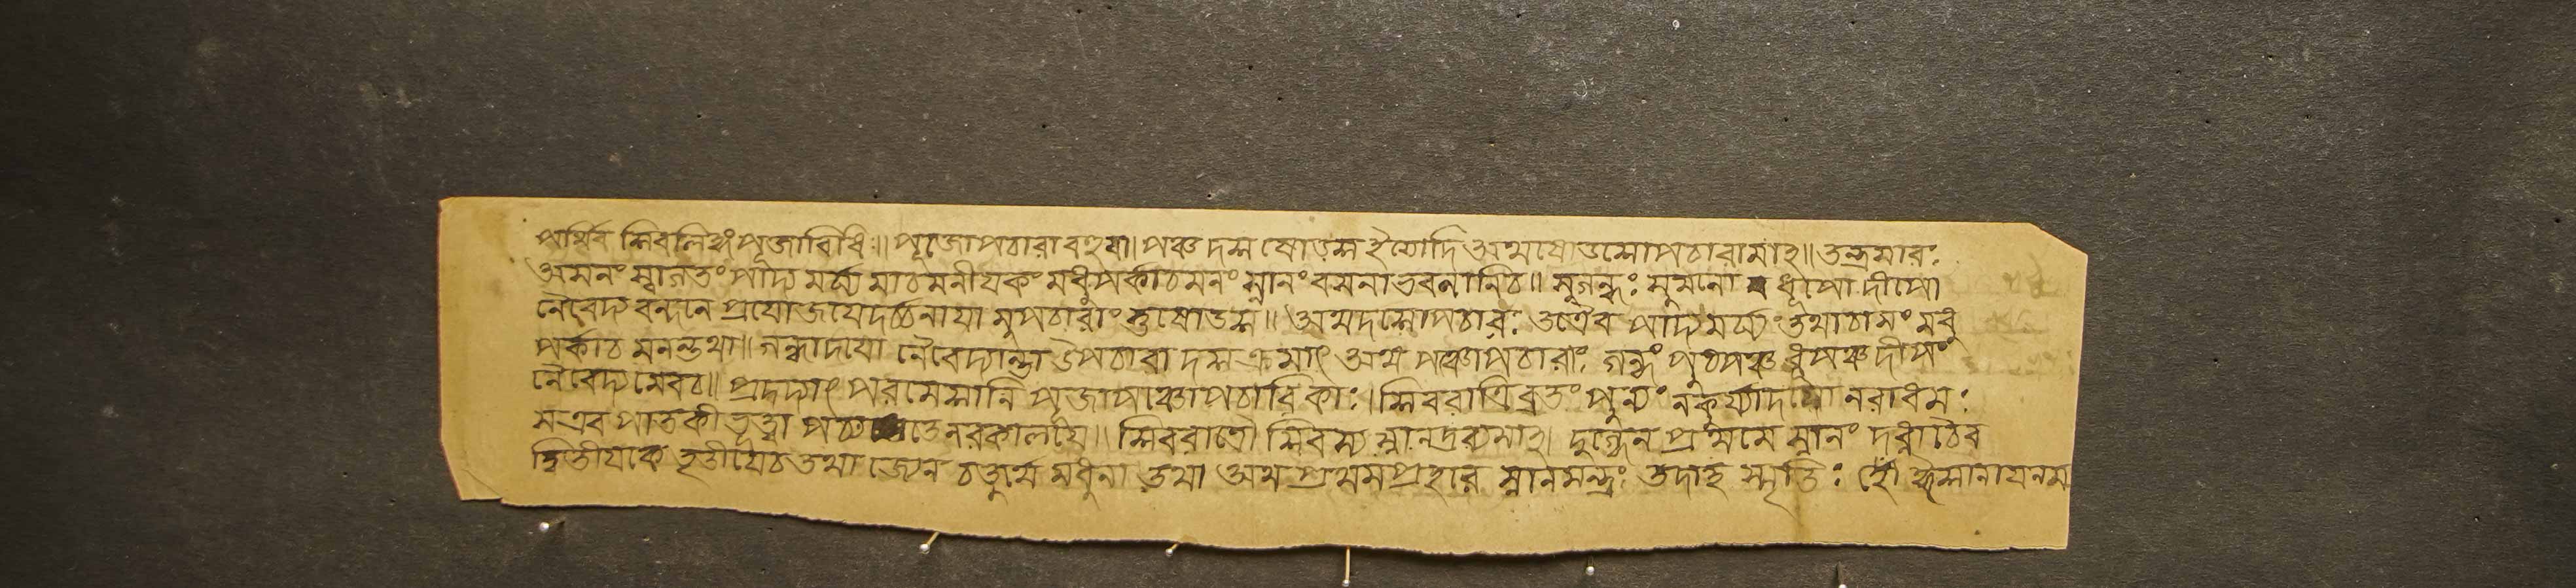 পার্থিব শিবলিঙ্গং পূজাবিধিঃ॥ পূজোপচারাবহুধা। পঞ্চ দশ ষোড়শ ইত্যাদি অথষোড়শোপচারামাহ॥ তন্ত্রসারঃ
আসনং স্বাগতং পাদ্য মর্ঘ্য মাচমনীয়কং মধুপর্কাচমনং স্নানং বসনাভরণানিচ॥ সুগন্ধঃ সুমনো ধূপো দীপো
নৈবেদ্য বন্দনে প্রযোজয়েদর্চ্চনায়া মুপচারাং স্তুষোড়শ॥ অথদশোপচারঃ তত্রৈব পাদ্যমর্ঘ্যং তথাচামং মধু
পর্কাচ মনন্তথা॥ গন্ধাদয়ো নৈবেদ্যান্তা উপচারা দশ ক্রমাৎ অথ পঞ্চোপচারাঃ গন্ধং পুষ্পঞ্চ ধূপঞ্চ দীপং
নৈবেদ্য মেবচ॥ প্রদদ্যাৎ পরমেশানি পূজাপঞ্চোপচারিকাঃ। শিবরাত্রিব্রতং পুন্যং নকুর্য্যাদযো নরাধমঃ
সএব পাতকী ভূত্বা পচ্যতেনরকালয়ে॥ শিবরাত্রৌ শিবস্য স্নানদ্রব্যমাহ। দুগ্ধেন প্রথমে স্নানং দধ্নাচৈব
দ্বিতীয়কে তৃতীয়েচ তথা জ্যেন চতুর্থে মধুনা তথা অথ প্রথমপ্রহরে স্নানমন্ত্রঃ তদাহ স্মৃতিঃ হৌঁ ঈশানায়নম